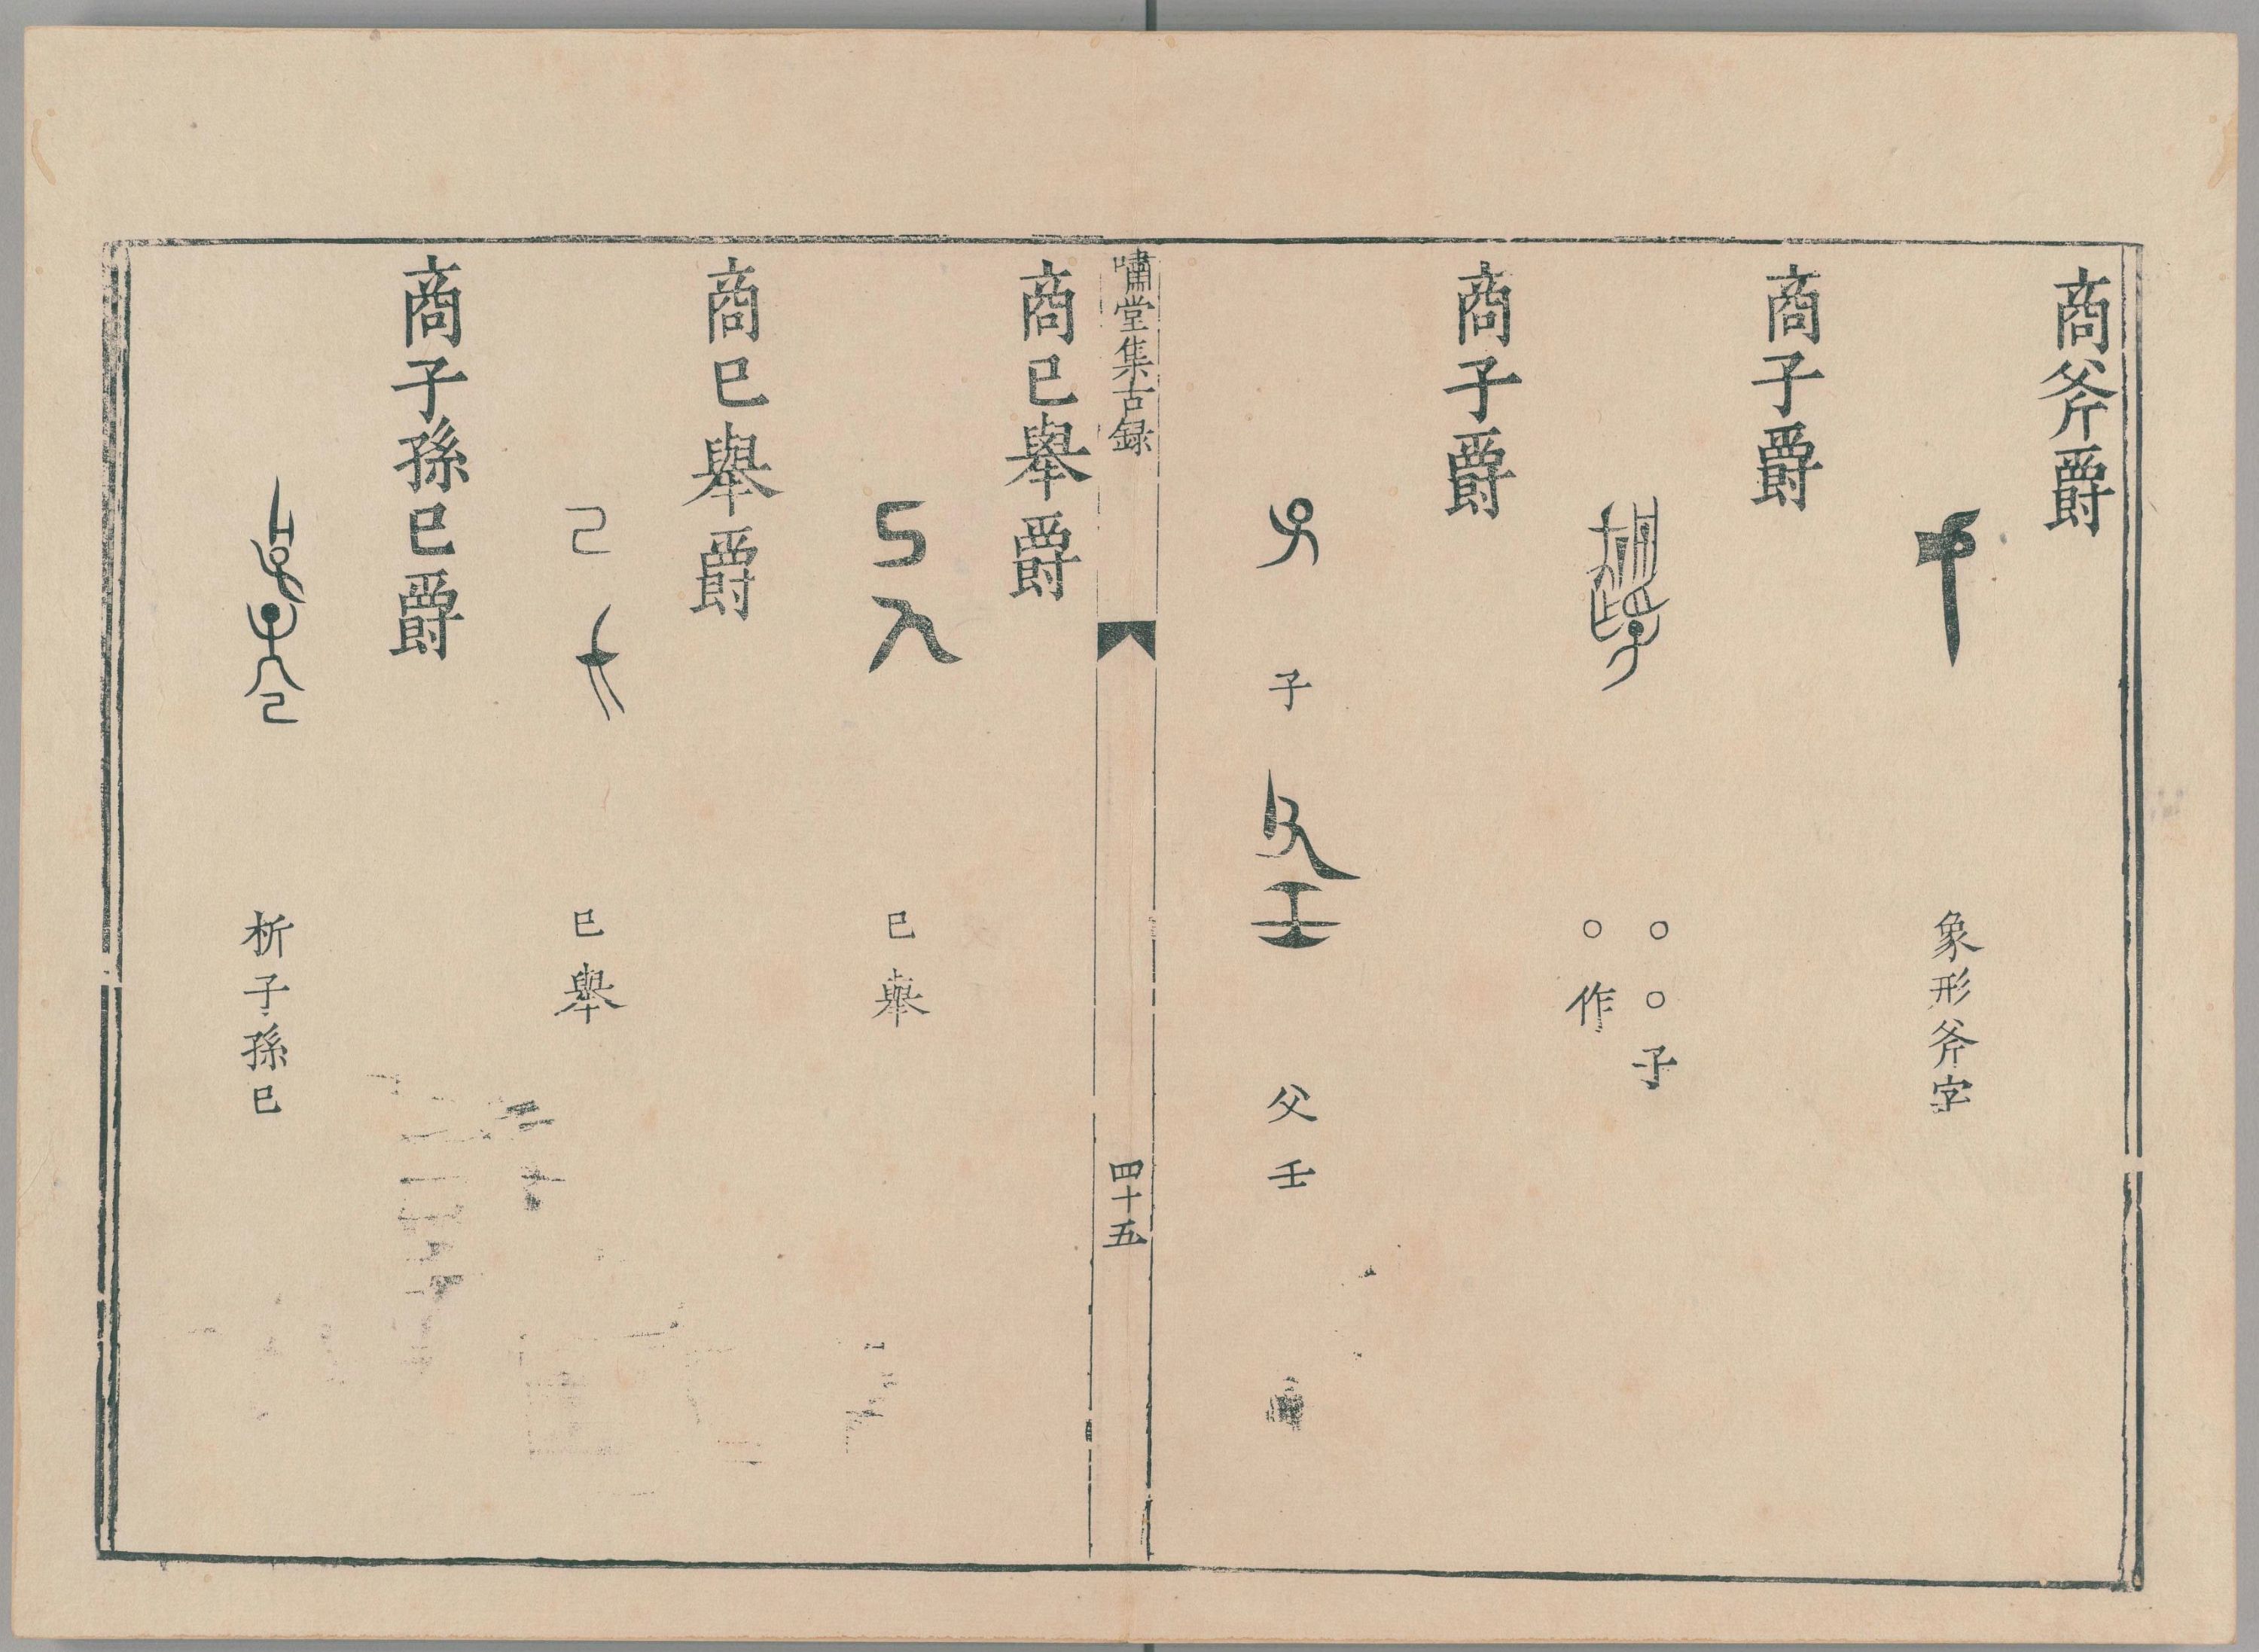 商斧爵
象形斧字
商子爵
○○子
○作
商子爵
子
父壬
嘯堂集古録
四十五
商巳舉爵
巳舉
商巳舉爵
巳舉
商子孫巳爵
析子孫巳